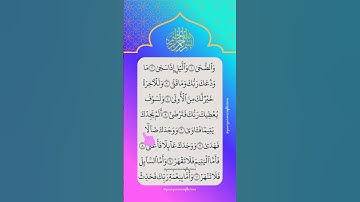 وَٱلضُّحَىٰ ۝١ وَٱلَّيۡلِ إِذَا سَجَىٰ ۝٢ مَا
وَدَّعَكَ رَبُّكَ وَمَا قَلَىٰ ۝٣ وَلَلۡأٓخِرَةُ
خَيۡرٞ لَّكَ مِنَ ٱلۡأُولَىٰ ۝٤ وَلَسَوۡفَ
يُعۡطِيكَ رَبُّكَ فَتَرۡضَىٰٓ ۝٥ أَلَمۡ يَجِدۡكَ
يَتِيمٗا فَـَٔاوَىٰ ۝٦ وَوَجَدَكَ ضَآلّٗا
فَهَدَىٰ ۝٧ وَوَجَدَكَ عَآئِلٗا فَأَغۡنَىٰ ۝٨
فَأَمَّا ٱلۡيَتِيمَ فَلَا تَقۡهَرۡ ۝٩ وَأَمَّا ٱلسَّآئِلَ
فَلَا تَنۡهَرۡ ۝١٠ وَأَمَّا بِنِعۡمَةِ رَبِّكَ فَحَدِّثۡ